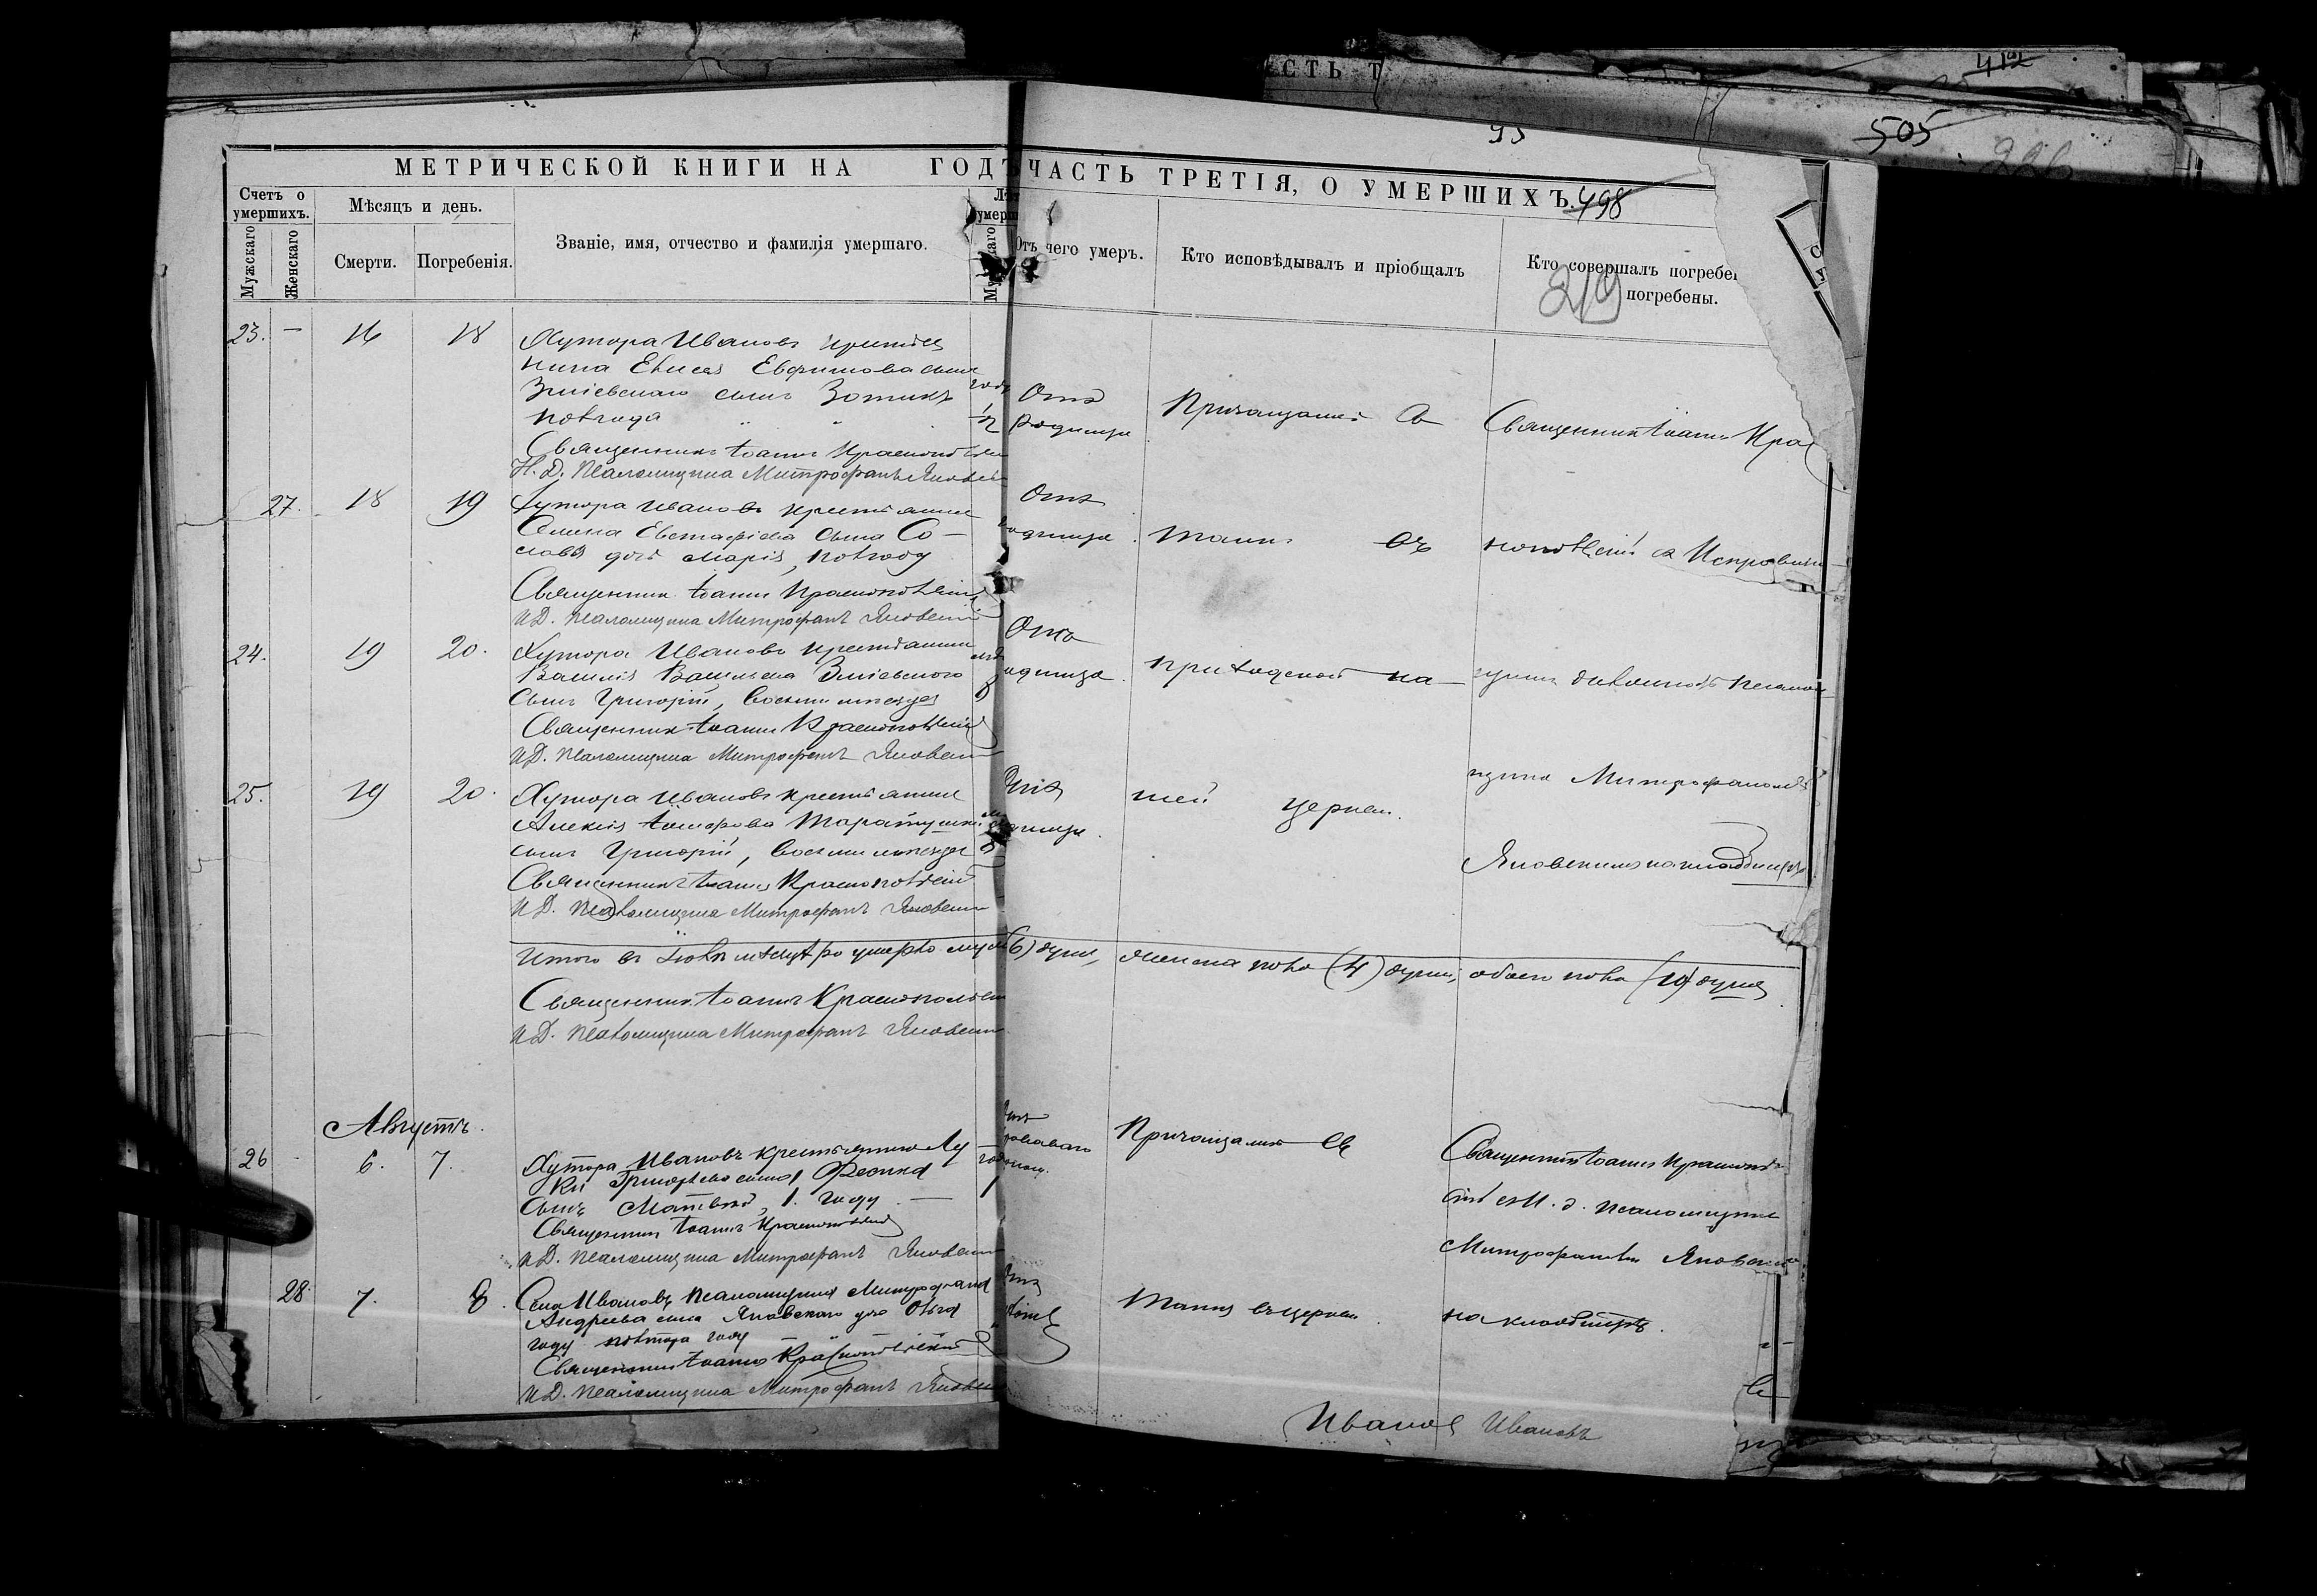 СТЬ Т
412
505
226
93
МЕТРИЧЕСКОЙ КНИГИ НА ГОДЪ
ЧАСТЬ ТРЕТІЯ, О УМЕРШИХЪ.
498
Счетъ о умершихъ.
Мужскаго
Женскаго
Мѣсяцъ и день.
Смерти.
Погребенія.
Званіе, имя, отчество и фамилія умершаго.
Лѣт
умерш
Отъ чего умеръ.
Кто исповѣдывалъ и пріобщалъ
Кто совершалъ погребе
погребены.
219
23. — 16 18
Хутора Ивановъ крестья
нина Елисея Евфимова сына
Зміевскаго сынъ Зотикъ
полгода
Священникъ Іоаннъ Краснопольскій
И. Д. Псаломщика Митрофанъ Яновскій
Отъ
родимца
Причащался Св
Священникъ Іоаннъ Крас
27. 18 19
Хутора Ивановъ крестьянина
Евстафіева сына Со-
дочь Марія, полгоду
Священникъ Іоаннъ Краснопольскій
И.Д. Псаломщика Митрофанъ Яновскій
Отъ
родимца.
Таинъ въ
нопольскій съ Исправляю
24. 19 20.
Хутора Ивановъ крестьянина
Василія Васильева Зміевского
сынъ Григорій, восьми мѣсяцевъ
8
Священникъ Іоаннъ Краснопольскій
И.Д. Псаломщика Митрофанъ Яновскій
Отъ
родимца.
приходской на-
щимъ должность псалом
25. 19 20.
Хутора Ивановъ крестьянина
Алексія
сынъ Григорій, восьми мѣсяцевъ
8
Священникъ Іоаннъ Краснопольскій
И.Д. Псаломщика Митрофанъ Яновскій
Отъ
родимца.
шей церкви.
щика Митрофаномъ
Яновскимъ на кладбищѣ
Итого въ Іюлѣ мѣсяцѣ умерло муж (6) душъ, женска пола (4) души, обоего пола (10) душъ
Священникъ Іоаннъ Краснопольскій
И.Д. Псаломщика Митрофанъ Яновскій
Августъ.
26 6. 7.
Хутора Ивановъ крестьянина Лу
ки Григорьева сына
сынъ Матвѣй, 1. году
1
Священникъ Іоаннъ Краснопольскій
И.Д. Псаломщика Митрофанъ Яновскій
Отъ
кроваваго
поноса.
Причащался Св
Священникъ Іоаннъ Краснополь
скій съ И. д. псаломщика
Митрофаномъ Яновскимъ
28. 7. 8.
Села Ивановъ Псаломщика Митрофана
Андреева сына Яновскаго дочь Ольга
году полтора году
Священникъ Іоаннъ Краснопольскій
И.Д. Псаломщика Митрофанъ Яновскій
Отъ
Таинъ въ церкви.
на кладбищѣ.
Иванов Ивановъ